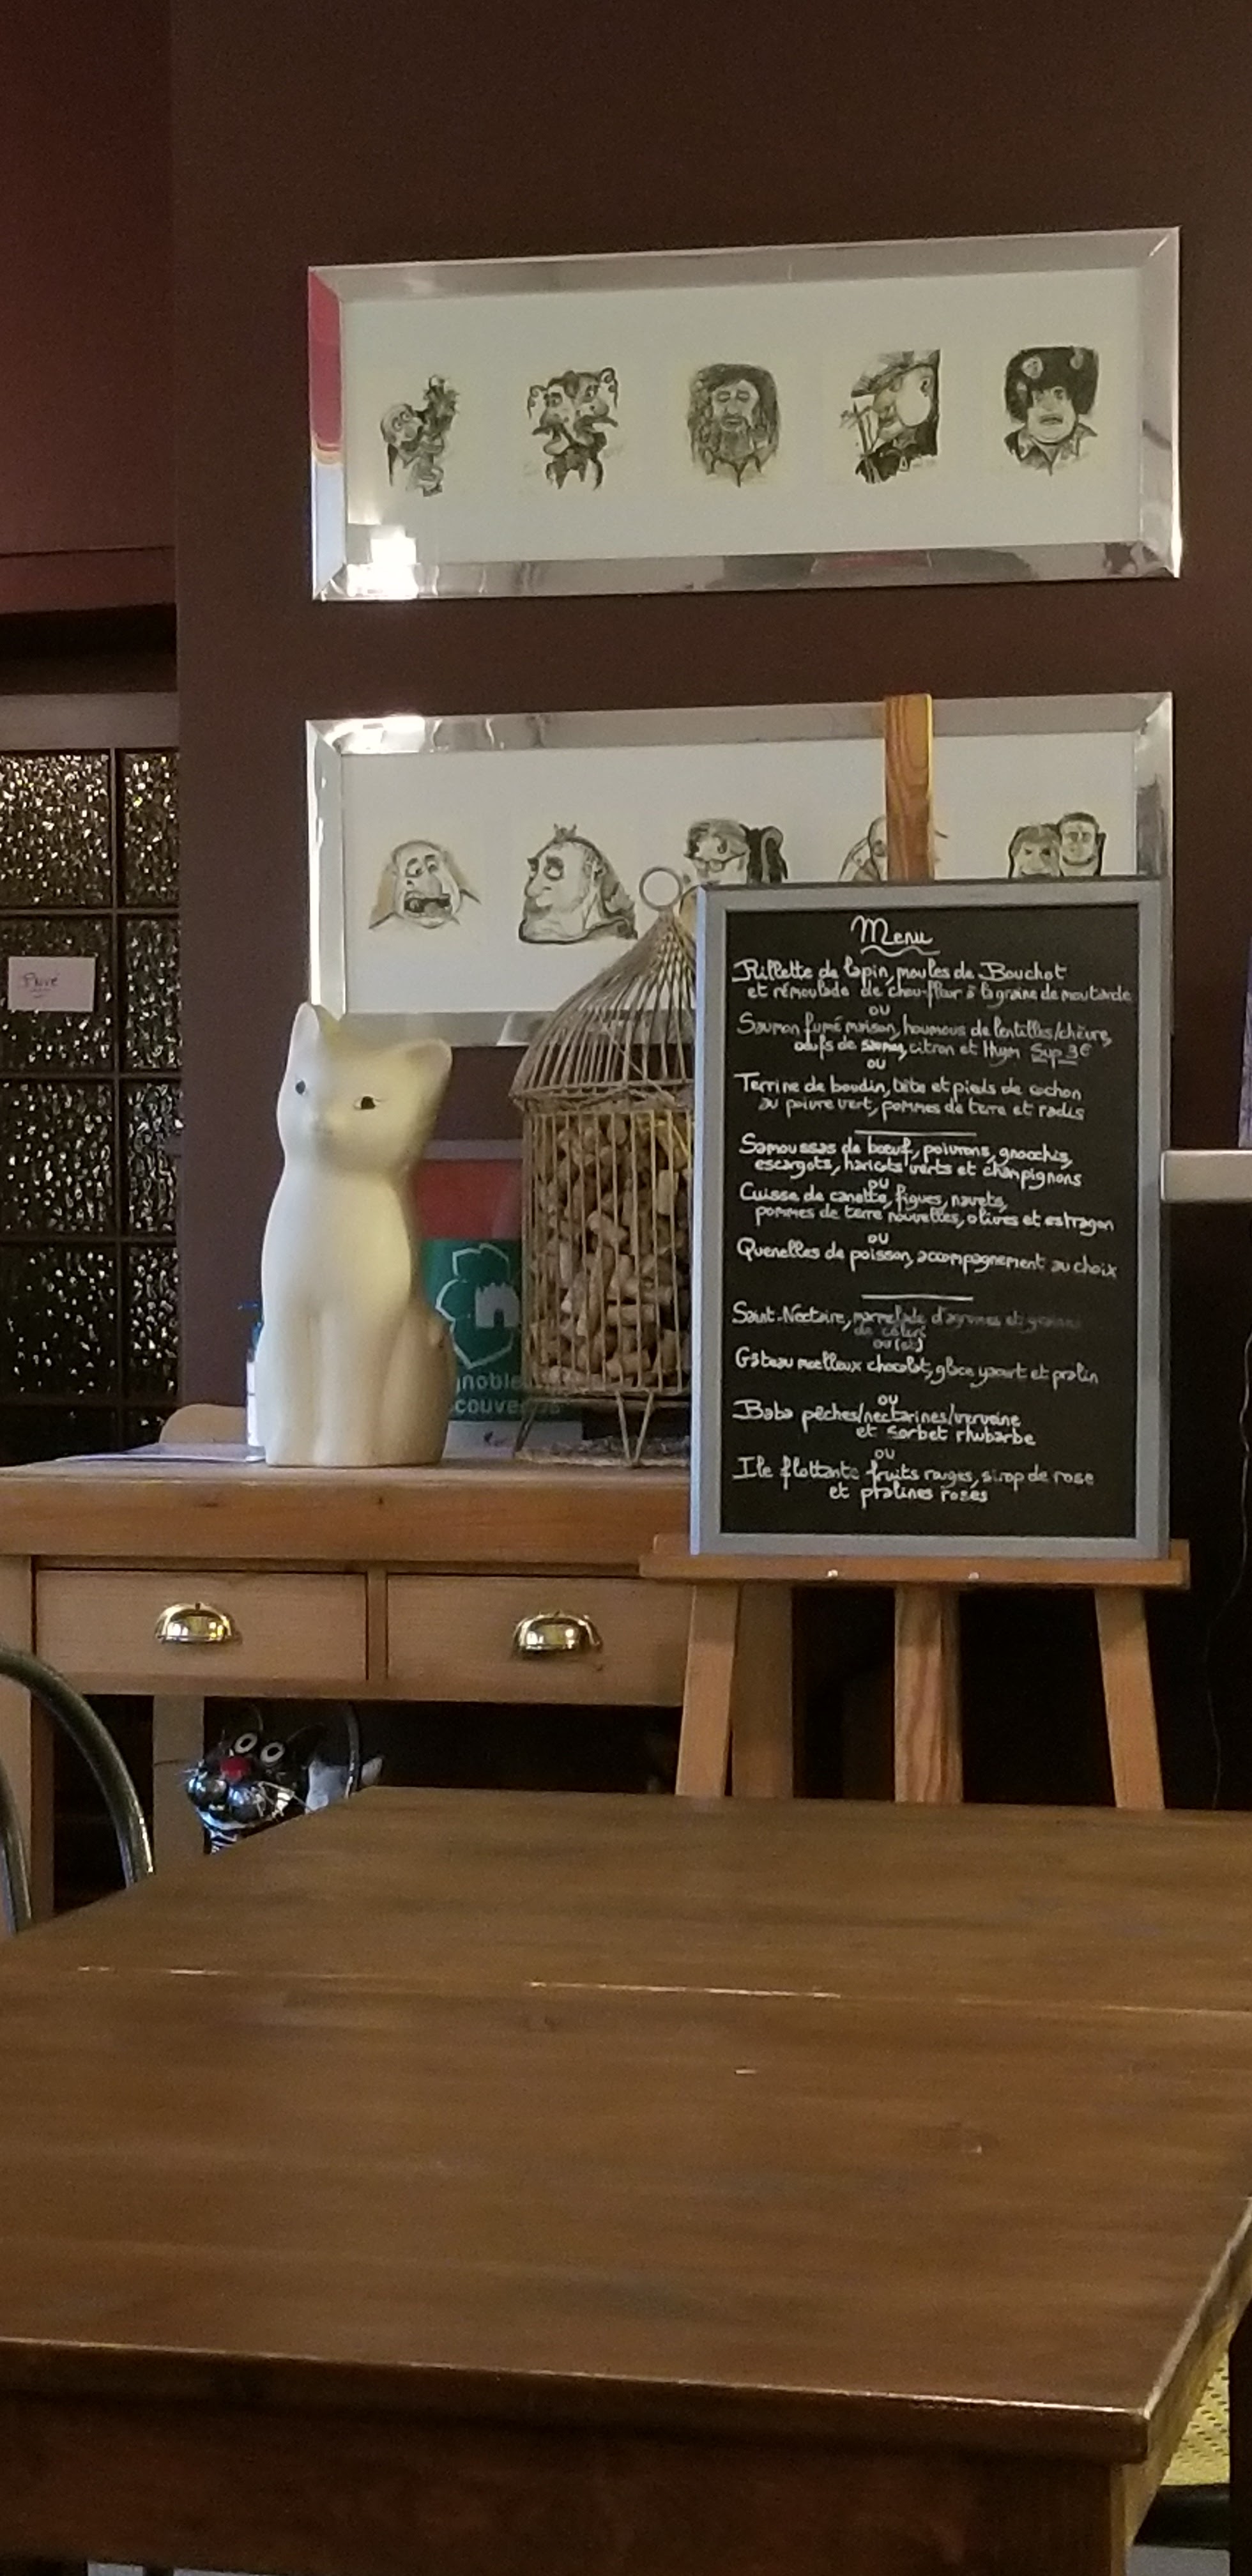 Privé
gnoble
couve
Menu
Rillette de lapin, moules de Bouchot
et rémoulade de chou-fleur à la graine de moutarde
ou
Saumon fumé maison, houmous de lentilles/chèvre,
œufs de saumon, citron et thym Sup 3€
ou
Terrine de boudin, tête et pieds de cochon
au poivre vert, pommes de terre et radis
Samoussas de bœuf, poivrons, gnocchis,
escargots, haricots verts et champignons
ou
Cuisse de canette, figues, navets,
pommes de terre nouvelles, olives et estragon
ou
Quenelles de poisson, accompagnement au choix
Saint-Nectaire, marmelade d'agrumes et graines
de céleri
ou(et)
Gâteau moelleux chocolat, glace yaourt et pralin
ou
Baba pêches/nectarines/verveine
et sorbet rhubarbe
ou
Ile flottante fruits rouges, sirop de rose
et pralines roses